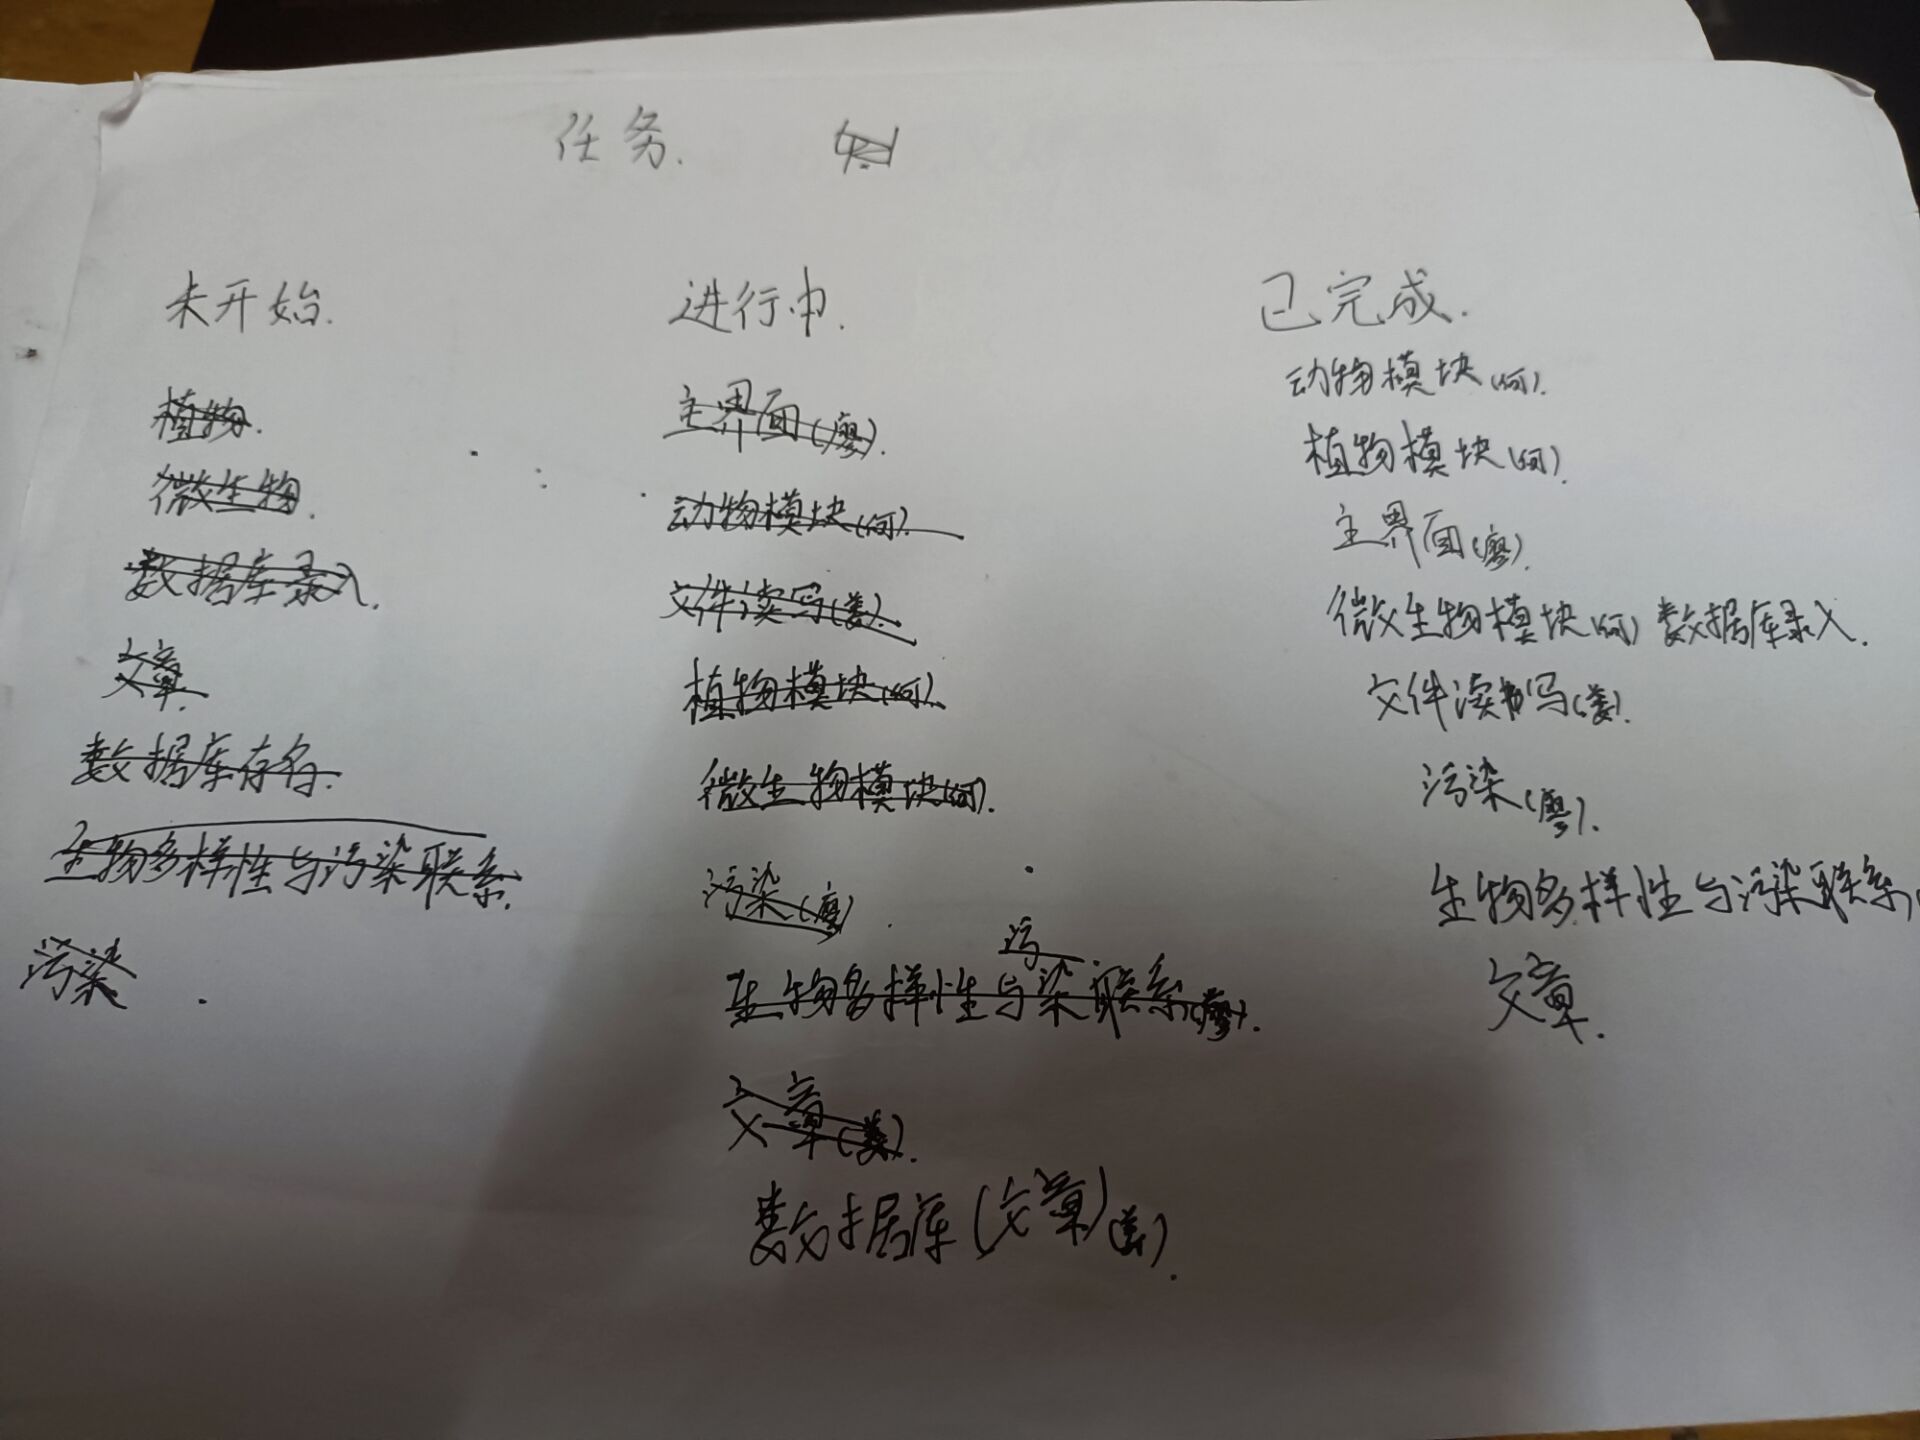 任务.
未开始.
植物.
微生物.
数据库录入.
文章.
数据库存名.
生物多样性与污染联系.
污染.
进行中.
主界面(廖).
动物模块(何).
文件读写(姜).
植物模块(何).
微生物模块(何).
污染(廖).
生物多样性与污染联系(廖).
文章(姜).
数据库(文章)(姜).
已完成.
动物模块(何).
植物模块(何).
主界面(廖).
微生物模块(何) 数据库录入.
文件读写(姜).
污染(廖).
生物多样性与污染联系
文章.